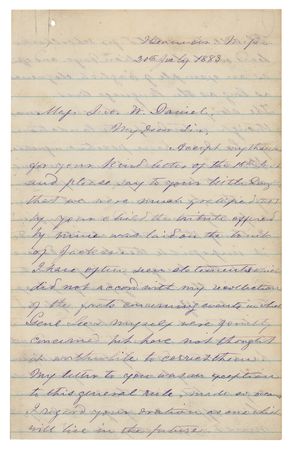 Beauvoir Missi
20th July 1883
Maj. Jno. W. Daniel,
My dear Sir,
Accept my thanks
for your kind letter of the 16th Inst
and please say to your little Boy
that we were much gratified
by your child the tribute offered
by mine was laid on the tomb
of Jackson.
I have often seen statements which
did not accord with my recollection
of the facts concerning events in which
Genl. Lee & myself were jointly
concerned but have not thought
it worth while to correct them.
My letter to you was an exception
to this general rule, made so as
I regard your oration as one which
will live in the future.